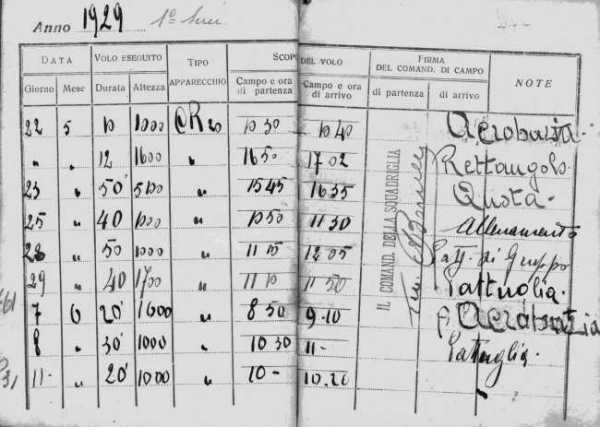 Anno 1929
DATA VOLO ESEGUITO TIPO APPARECCHIO SCOPO DEL VOLO FIRMA DEL COMAND. DI CAMPO NOTE
Giorno Mese Durata Altezza Campo e ora di partenza Campo e ora di arrivo di partenza di arrivo
22 5 10 1000 CR20 10 30 10 40 Acrobazia
" " 12 1600 " 16 50 17 02 Rettangolo
23 " 50' " 15 45 16 35 Quota
25 " 40 1000 " 10 50 11 30 Allenamento
28 " 50 1000 " 11 15 12 05 Patt. di Gruppo
29 " 40 1700 " 11 10 11 50 Pattuglia
7 6 20' 1000 " 8 50 9 10 Acrobazia
8 " 30' 1000 " 10 30 11 - Pattuglia
11 " 20' 1000 " 10 - 10.20
IL COMAND. DELLA SQUADRIGLIA